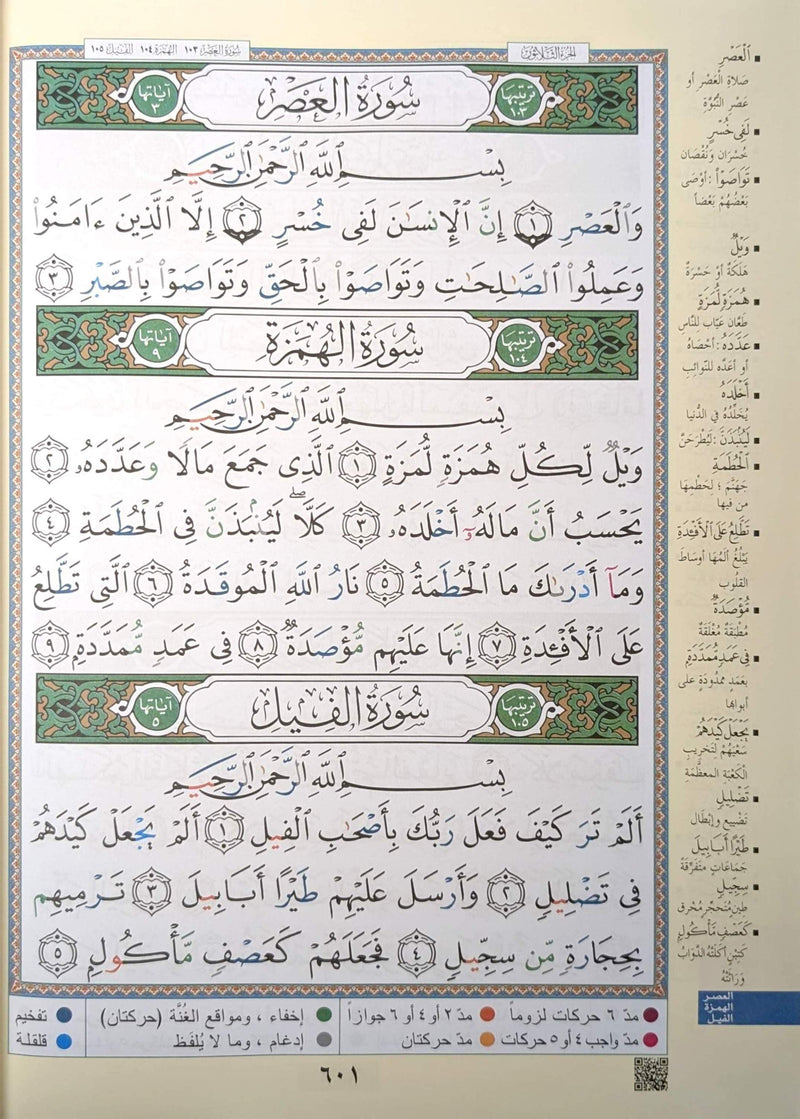 سُورَةُ العَصْرِ ١٠٣ الهُمَزَة ١٠٤ الفِيل ١٠٥
الجزء الثلاثون
آياتها ٣
سُورَةُ العَصْرِ
ترتيبها ١٠٣
بِسْمِ ٱللَّهِ ٱلرَّحْمَٰنِ ٱلرَّحِيمِ
وَٱلْعَصْرِ ١ إِنَّ ٱلْإِنسَٰنَ لَفِى خُسْرٍ ٢ إِلَّا ٱلَّذِينَ ءَامَنُوا۟
وَعَمِلُوا۟ ٱلصَّٰلِحَٰتِ وَتَوَاصَوْا۟ بِٱلْحَقِّ وَتَوَاصَوْا۟ بِٱلصَّبْرِ ٣
آياتها ٩
سُورَةُ الهُمَزَةِ
ترتيبها ١٠٤
بِسْمِ ٱللَّهِ ٱلرَّحْمَٰنِ ٱلرَّحِيمِ
وَيْلٌ لِّكُلِّ هُمَزَةٍ لُّمَزَةٍ ١ ٱلَّذِى جَمَعَ مَالًا وَعَدَّدَهُۥ ٢
يَحْسَبُ أَنَّ مَالَهُۥٓ أَخْلَدَهُۥ ٣ كَلَّا ۖ لَيُنۢبَذَنَّ فِى ٱلْحُطَمَةِ ٤
وَمَآ أَدْرَىٰكَ مَا ٱلْحُطَمَةُ ٥ نَارُ ٱللَّهِ ٱلْمُوقَدَةُ ٦ ٱلَّتِى تَطَّلِعُ
عَلَى ٱلْأَفْـِٔدَةِ ٧ إِنَّهَا عَلَيْهِم مُّؤْصَدَةٌ ٨ فِى عَمَدٍ مُّمَدَّدَةٍۭ ٩
آياتها ٥
سُورَةُ الفِيلِ
ترتيبها ١٠٥
بِسْمِ ٱللَّهِ ٱلرَّحْمَٰنِ ٱلرَّحِيمِ
أَلَمْ تَرَ كَيْفَ فَعَلَ رَبُّكَ بِأَصْحَٰبِ ٱلْفِيلِ ١ أَلَمْ يَجْعَلْ كَيْدَهُمْ
فِى تَضْلِيلٍ ٢ وَأَرْسَلَ عَلَيْهِمْ طَيْرًا أَبَابِيلَ ٣ تَرْمِيهِم
بِحِجَارَةٍ مِّن سِجِّيلٍ ٤ فَجَعَلَهُمْ كَعَصْفٍ مَّأْكُولٍۭ ٥
■ ٱلْعَصْرِ
صَلاةِ العَصْر أو
عَصْر النُّبُوَّة
■ لَفِى خُسْرٍ
خُسْرَان وَنُقْصَان
■ تَوَاصَوْا۟ : أوْصَى
بَعْضُهُمْ بَعْضاً
■ وَيْلٌ
هَلَكَةٌ أوْ حَسْرَةٌ
■ هُمَزَةٍ لُّمَزَةٍ
طَعَّان عَيَّاب للنَّاس
■ عَدَّدَهُ : أحْصَاهُ
أو أعَدَّه للنَّوائِب
■ أَخْلَدَهُ
يُخَلِّدُهُ في الدُّنيا
■ لَيُنۢبَذَنَّ : لَيُطْرَحَنَّ
■ ٱلْحُطَمَةِ
جَهَنَّمَ ؛ لحَطْمِها
من فيها
■ تَطَّلِعُ عَلَى ٱلْأَفْـِٔدَةِ
يَبْلُغُ ألَمُهَا أوساطَ
القلوب
■ مُؤْصَدَةٌ
مُطْبَقَةٌ مُغْلَقَةٌ
■ فِى عَمَدٍ مُّمَدَّدَةٍ
بعَمَدٍ ممدُودَةٍ على
أبوابها
■ يَجْعَلْ كَيْدَهُمْ
سَعْيَهُمْ لتَخْرِيبِ
الكَعْبَة المعظَّمةِ
■ تَضْلِيلٍ
تَضْيِيعٍ وإبْطَال
■ طَيْرًا أَبَابِيلَ
جَمَاعَاتٍ متفَرِّقَةً
■ سِجِّيلٍ
طين مُتَحَجِّر مُحْرق
■ كَعَصْفٍ مَّأْكُولٍ
كَتِبْنٍ أكَلَتْهُ الدَّوَابُّ
وَرَاثَتْهُ
العصر
الهمزة
الفيل
مدّ ٦ حركات لزوماً
مدّ ٢ أو ٤ أو ٦ جوازاً
إخفاء ، ومواقع الغُنَّة (حركتان)
تفخيم
مدّ واجب ٤ أو ٥ حركات
مدّ حركتان
إدغام ، وما لا يُلفَظ
قلقلة
٦٠١